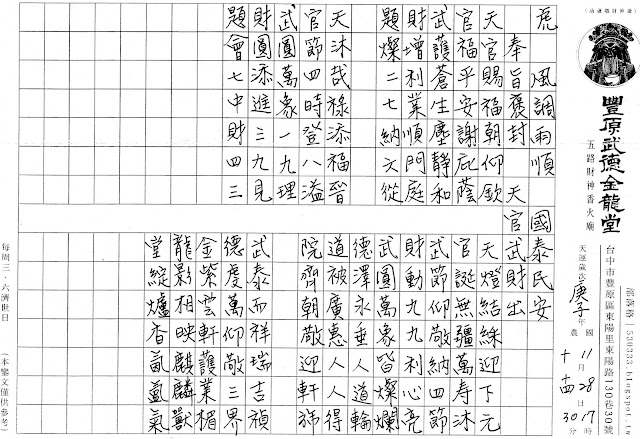 豐原武德金龍堂
五路財神香火廟
部落格 | 530333.blogspot.tw
台中市豐原區東陽里東陽路130巷30號
天運歲次庚子年
國11月28日17時
農十月十四日30分
虎 風調雨順
國泰民安
奉旨褒封
天官武財出
天官賜福朝仰欽
官福平安謝庇蔭
武護蒼生塵靜和
財增利業順門庭
題燦二七納文從
天沐哉祿添福晉
官節四時登八溢
武圓萬象一九理
財圓添進三九見
題會七中財四三
天燈結綵迎下元
官誕無疆萬壽沐
武節九九納四節
財動仰敬利心亮
武圓萬象皆燦爛
德澤永垂人道輪
道被廣惠人人得
院齊朝敬迎軒旆
武泰而祥瑞吉禎
德虔萬仰敬三界
金紫雲軒護業楣
龍影相映麒麟獸
堂綻爐香氤氳氣
每周三．六濟世日
（本鑾文僅供參考）